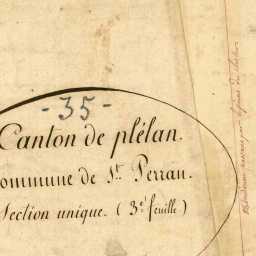 - 35 -
Canton de plélan.
ommune de St. Perran.
Section unique. ( 3e. feuille )